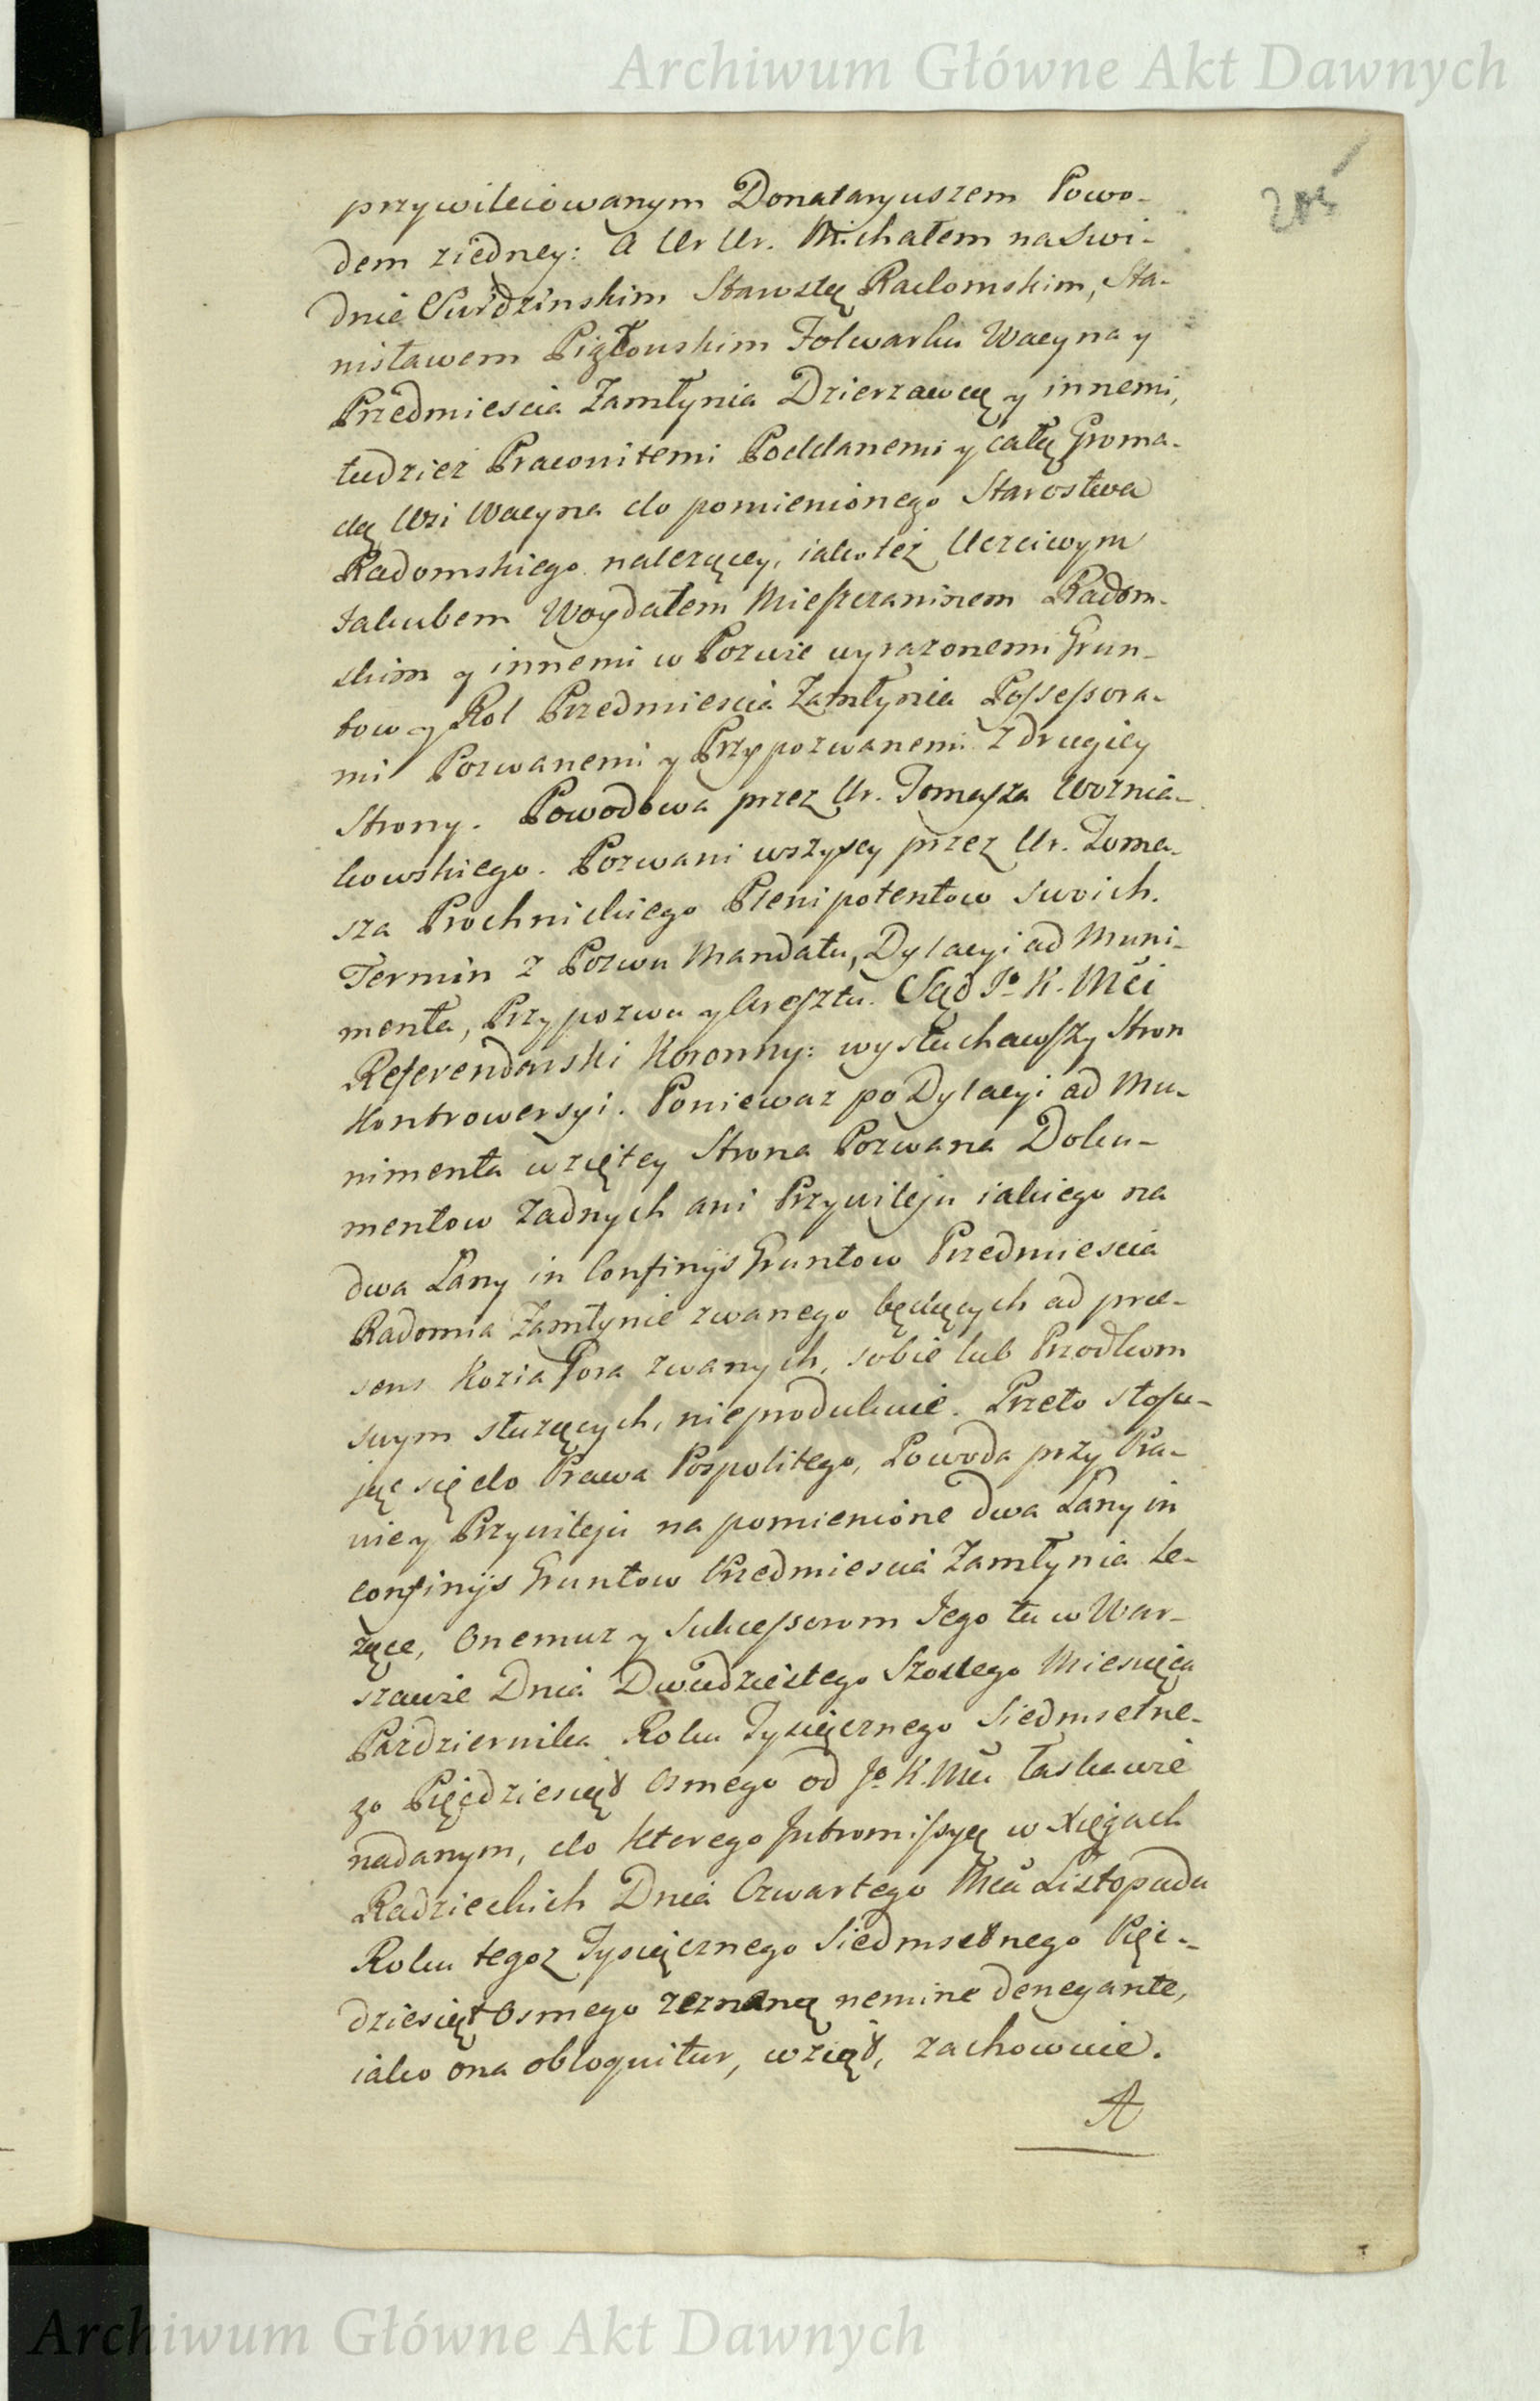 Archiwum Główne Akt Dawnych
205
przywileiowanym Donataryuszem Powo-
dem ziedney: A Ur Ur. Michałem na Swi-
dnie Swidzinskim Starostą Radomskim, Sta-
nisławem Piątkowskim Folwarku Wacyna y
Przedmiescia Zamłynia Dzierzawcą y innemi,
tudziez Pracowitemi Poddanemi y całą Groma-
dą Wsi Wacyna do pomienionego Starostwa
Radomskiego nalezącey, iako też Uczciwym
Jakubem Woydałem Mieszczaninem Radom-
skim y innemi w Pozwie wyrazonemi Grun-
tow y Rol Przedmiescia Zamłynia Possesora-
mi Pozwanemi y Przypozwanemi z drugiey
Strony. Powodowa przez Ur. Tomasza Woznia-
kowskiego. Pozwani wszyscy przez Ur. Toma-
sza Prochnickiego Plenipotentow swoich.
Termin z Pozwu Mandatu, Dylacyi ad Muni-
menta, Przypozwu y Aresztu. Sąd Jo K. Mci
Referendarski Koronny: wysłuchawszy Stron
Kontrowersyi. Poniewaz po Dylacyi ad Mu-
nimenta wziętey Strona Pozwana Doku-
mentow zadnych ani Przywileju iakiego na
dwa Łany in Confinijs Gruntow Przedmiescia
Radomia Zamłynie zwanego będących ad prae-
sens Kozia Gora zwanych, sobie lub Przodkom
swym słuzących, nieprodukuie. Przeto stosu-
jąc się do Prawa Pospolitego, Powoda przy Pra-
wie y Przywileju na pomienione dwa Łany in
confinijs Gruntow Przedmiescia Zamłynia le-
zące, Onemuz y Sukcessorom Jego tu w War-
szawie Dnia Dwudziestego Szostego Miesiąca
Pazdziernika Roku Tysiącznego Siedmsetne-
go Pięćdziesiąt Osmego od Jo K. Mci łaskawie
nadanym, do ktorego Intromissyą w Xięgach
Radzieckich Dnia Czwartego Mca Listopada
Roku tegoz Tysiącznego Siedmsetnego Pięć-
dziesiąt Osmego zeznaną nemine denegante,
iako ona obloquitur, wziął, zachowuie.
A
Archiwum Główne Akt Dawnych